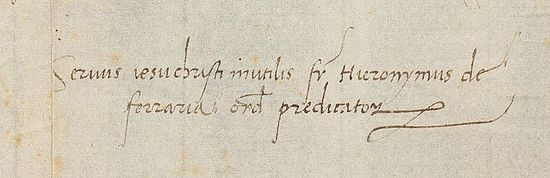 Servus iesu christi inutilis fr Hieronymus de
ferraria ord predicator